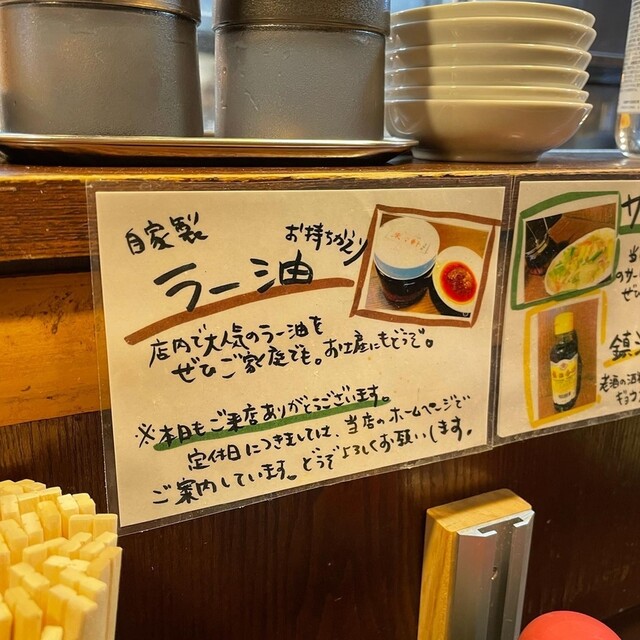 自家製
お持ちかえり
ラー油
店内で大人気のラー油を
ぜひご家庭でも。お土産にもどうぞ。
※本日もご来店ありがとうございます。
定休日につきましては、当店のホームページで
ご案内しています。どうぞよろしくお願いします。
サ
当
のサー
ぜひ
鎮江
老酒の酒